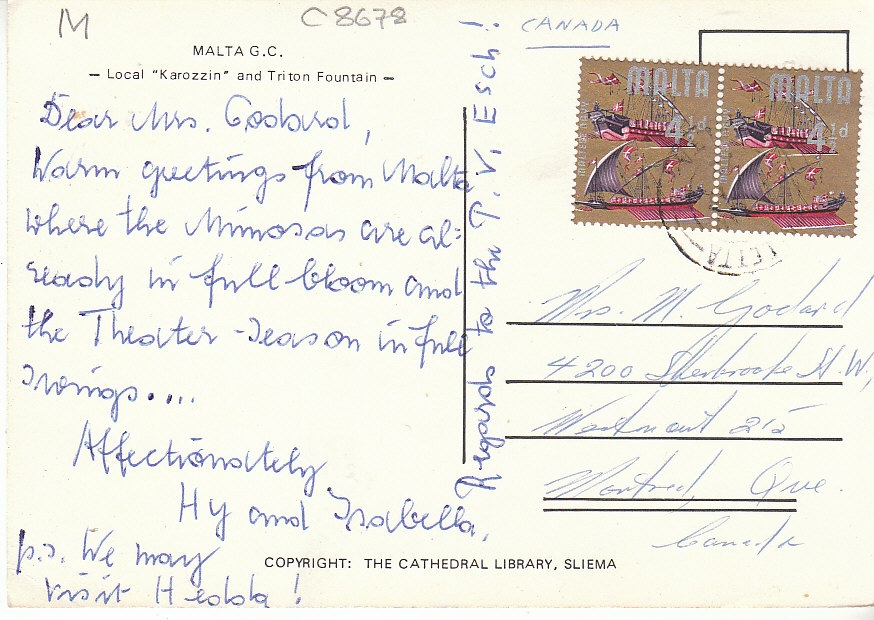 M
C8678
CANADA
MALTA G.C.
– Local "Karozzin" and Triton Fountain –
MALTA 4½d
MALTA 4½d
Dear Mrs. Godard,
Warm greetings from Malta
where the Mimosas are al=
ready in full bloom and
the Theater-Season in full
Swings....
Affectionately
Hy and Isabella.
p.s. We may
visit Hedda!
Regards to the P.V. Esch!
Mrs. M. Godard
4200 Sherbrooke St. W.,
Westmount 215
Montreal, Que.
Canada
COPYRIGHT: THE CATHEDRAL LIBRARY, SLIEMA